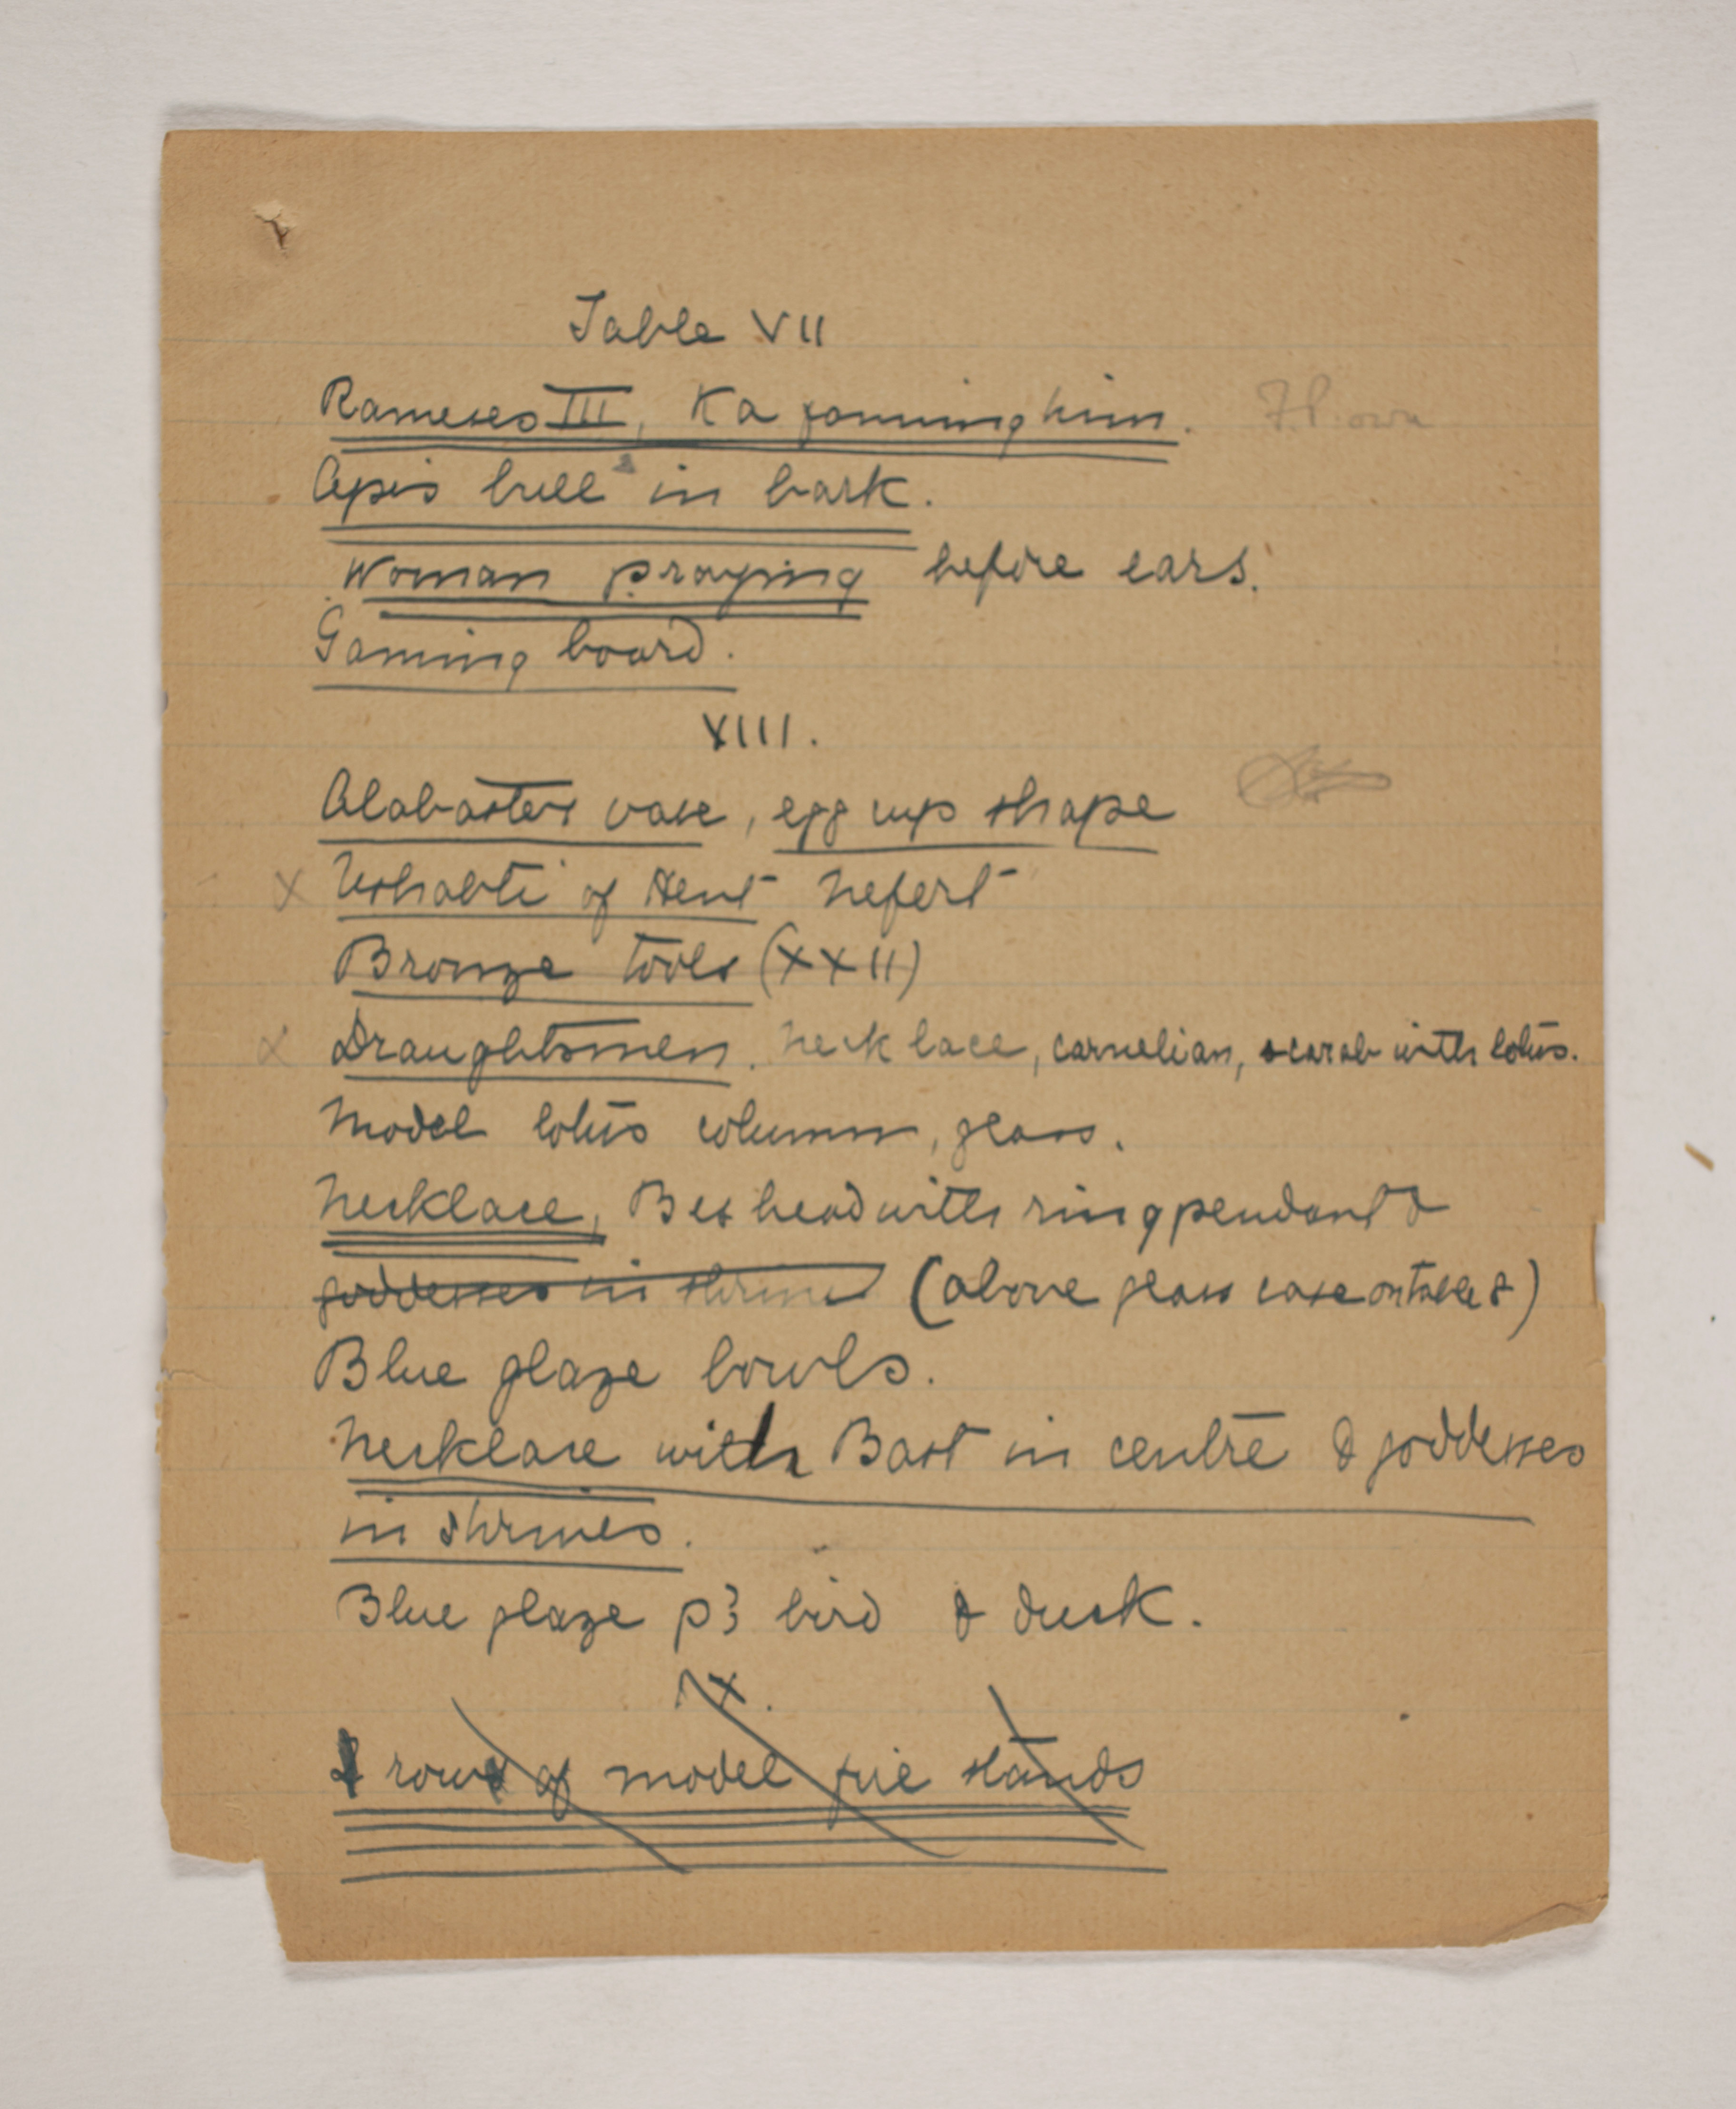 Table VII
Rameses III, Ka fanning him. F.P. own
Apis bull in bark.
Woman praying before ears.
Gaming board.
VIII.
Alabaster vase, egg cup shape
x Ushabti of Hent Nefert
Bronze tools (XXII)
x Draughtsmen. Necklace, carnelian, scarab with lotus.
Model lotus column, glass.
Necklace, Bes head with ring pendant &
goddesses in shrines (above glass case on table 8)
Blue glaze bowls.
Necklace with Bast in centre & goddesses
in shrines.
Blue glaze bird & duck.
IX.
rows of model fire stands